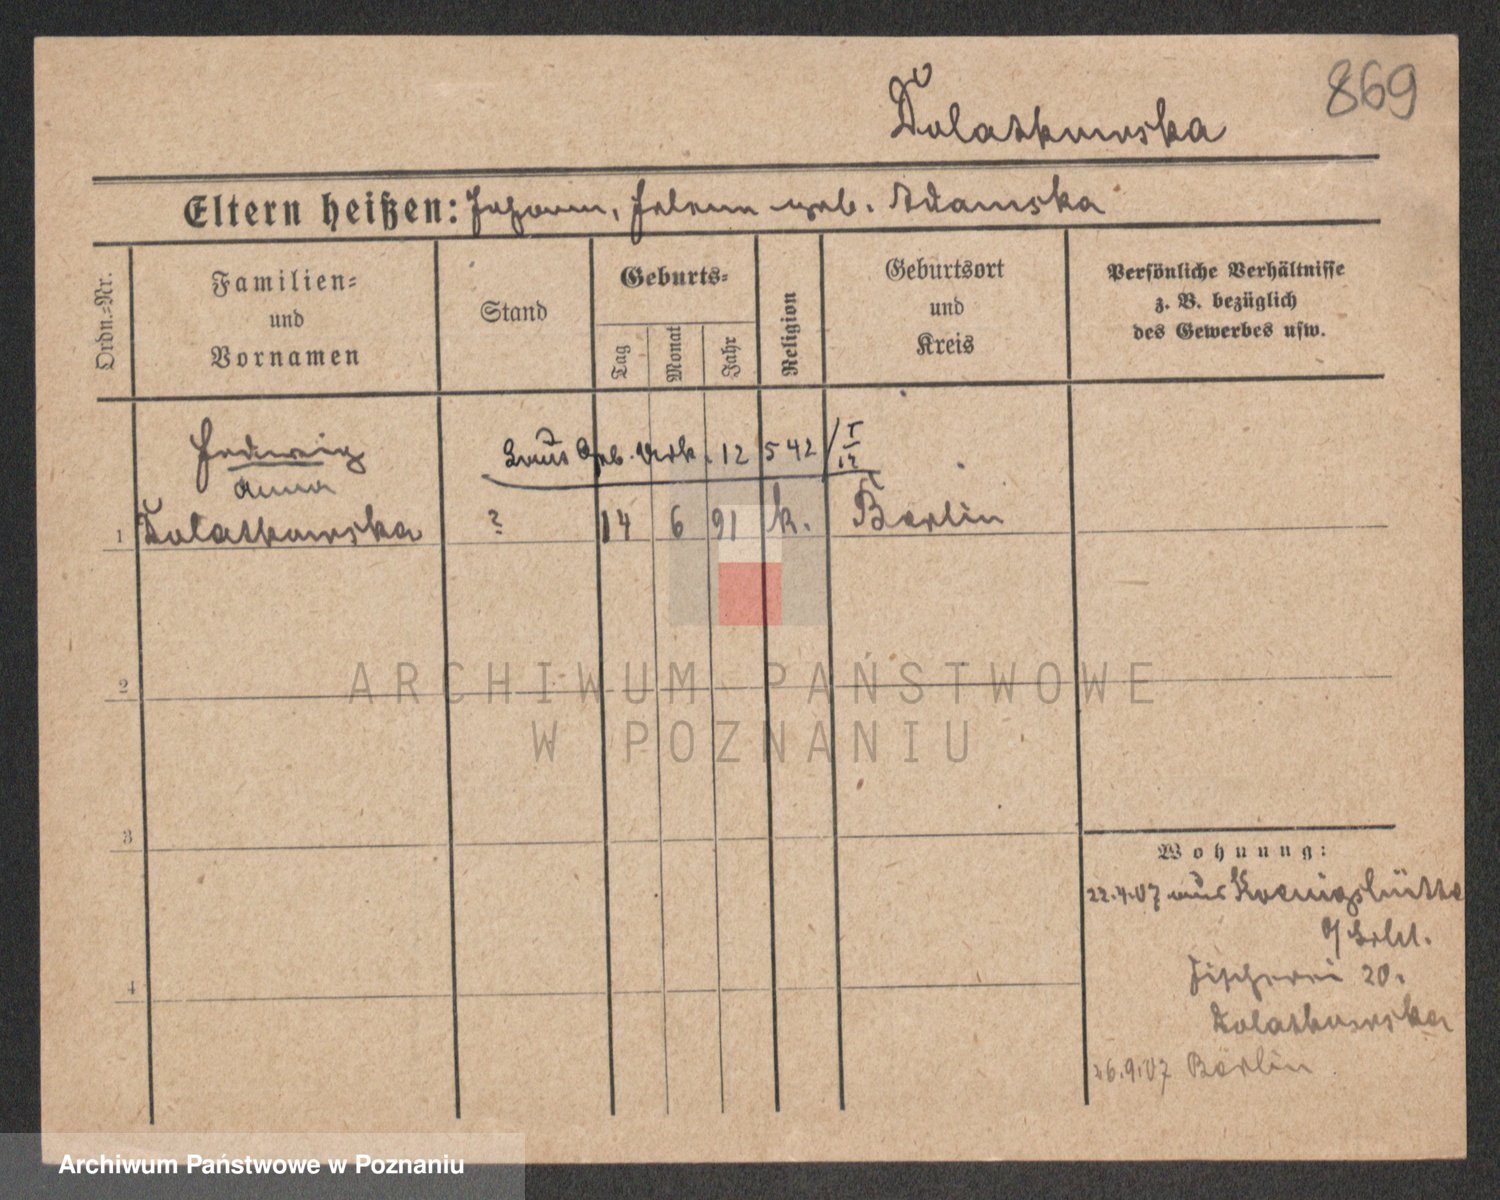 869
Dolatkowska
Eltern heißen: Johann, Helene geb. Adamska
Ordn.=Nr.
Familien=
und
Vornamen
Stand
Geburts=
Tag
Monat
Jahr
Religion
Geburtsort
und
Kreis
Persönliche Verhältnisse
z. B. bezüglich
des Gewerbes usw.
Hedwig
Anna
laut Geb. Urk. 12 542
1 Dolatkowska ? 14 6 91 k. Berlin
2
3
4
Wohnung:
22.4.07 aus Koenigshütte
Fischerei 20.
Dolatkowska
26.9.07 Berlin
ARCHIWUM PAŃSTWOWE
W POZNANIU
Archiwum Państwowe w Poznaniu